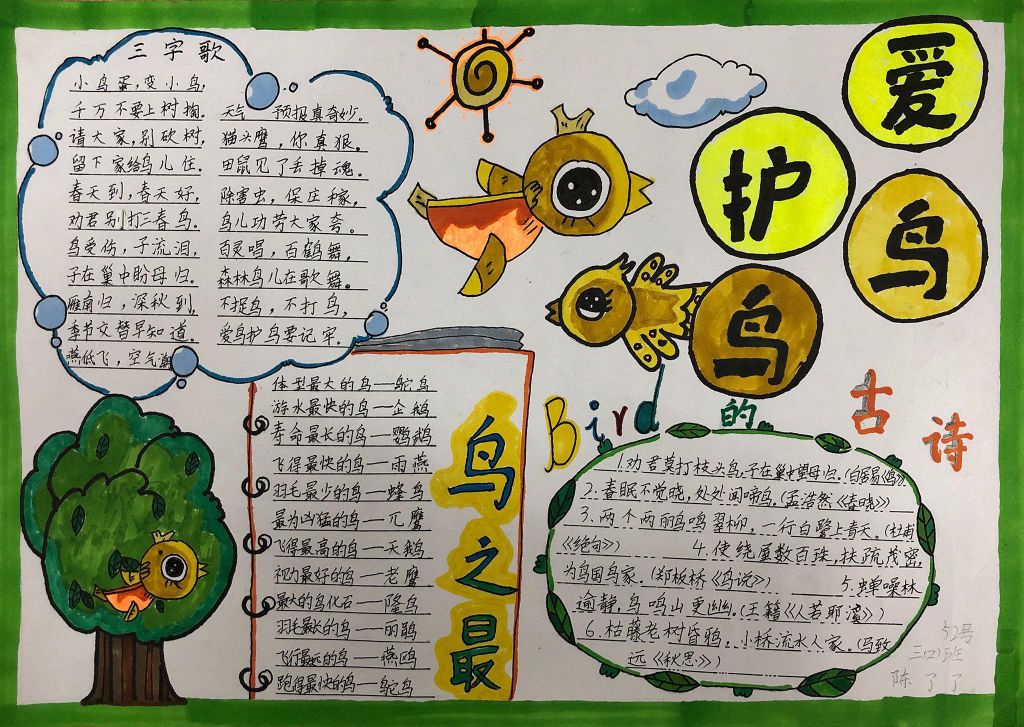 爱护鸟
鸟
三字歌
小鸟蛋,变小鸟,
千万不要上树掏。
请大家,别砍树,
留下家给鸟儿住。
春天到,春天好,
劝君别打三春鸟。
鸟受伤,子流泪,
子在巢中盼母归。
雁南归,深秋到,
季节交替早知道。
燕低飞,空气潮
天气 预报真奇妙。
猫头鹰,你真狠。
田鼠见了丢掉魂。
除害虫,保庄稼,
鸟儿功劳大家夸。
百灵唱,百鹤舞,
森林鸟儿在歌舞。
不捉鸟,不打鸟,
爱鸟护鸟要记牢。
鸟之最
体型最大的鸟—鸵鸟
游水最快的鸟—企鹅
寿命最长的鸟—鹦鹉
飞得最快的鸟—雨燕
羽毛最少的鸟—蜂鸟
最为凶猛的鸟—兀鹰
飞得最高的鸟—天鹅
视力最好的鸟—老鹰
最大的鸟化石—隆鸟
羽毛最长的鸟—丽鹃
飞行最远的鸟—燕鸥
跑得最快的鸟—鸵鸟
Bird 的古诗
1.劝君莫打枝头鸟,子在巢中望母归。(白居易《鸟》)
2.春眠不觉晓,处处闻啼鸟。(孟浩然《春晓》)
3.两个两丽鸟鸣翠柳,一行白鹭上青天。(杜甫
《绝句》) 4.使绕屋数百珠,扶疏茂密,
为鸟国鸟家。(郑板桥《鸟说》) 5.蝉噪林
逾静,鸟鸣山更幽。(王籍《入若耶溪》)
6.枯藤老树昏鸦,小桥流水人家。(马致
远《秋思》)
52号
三(2)班
陈了了